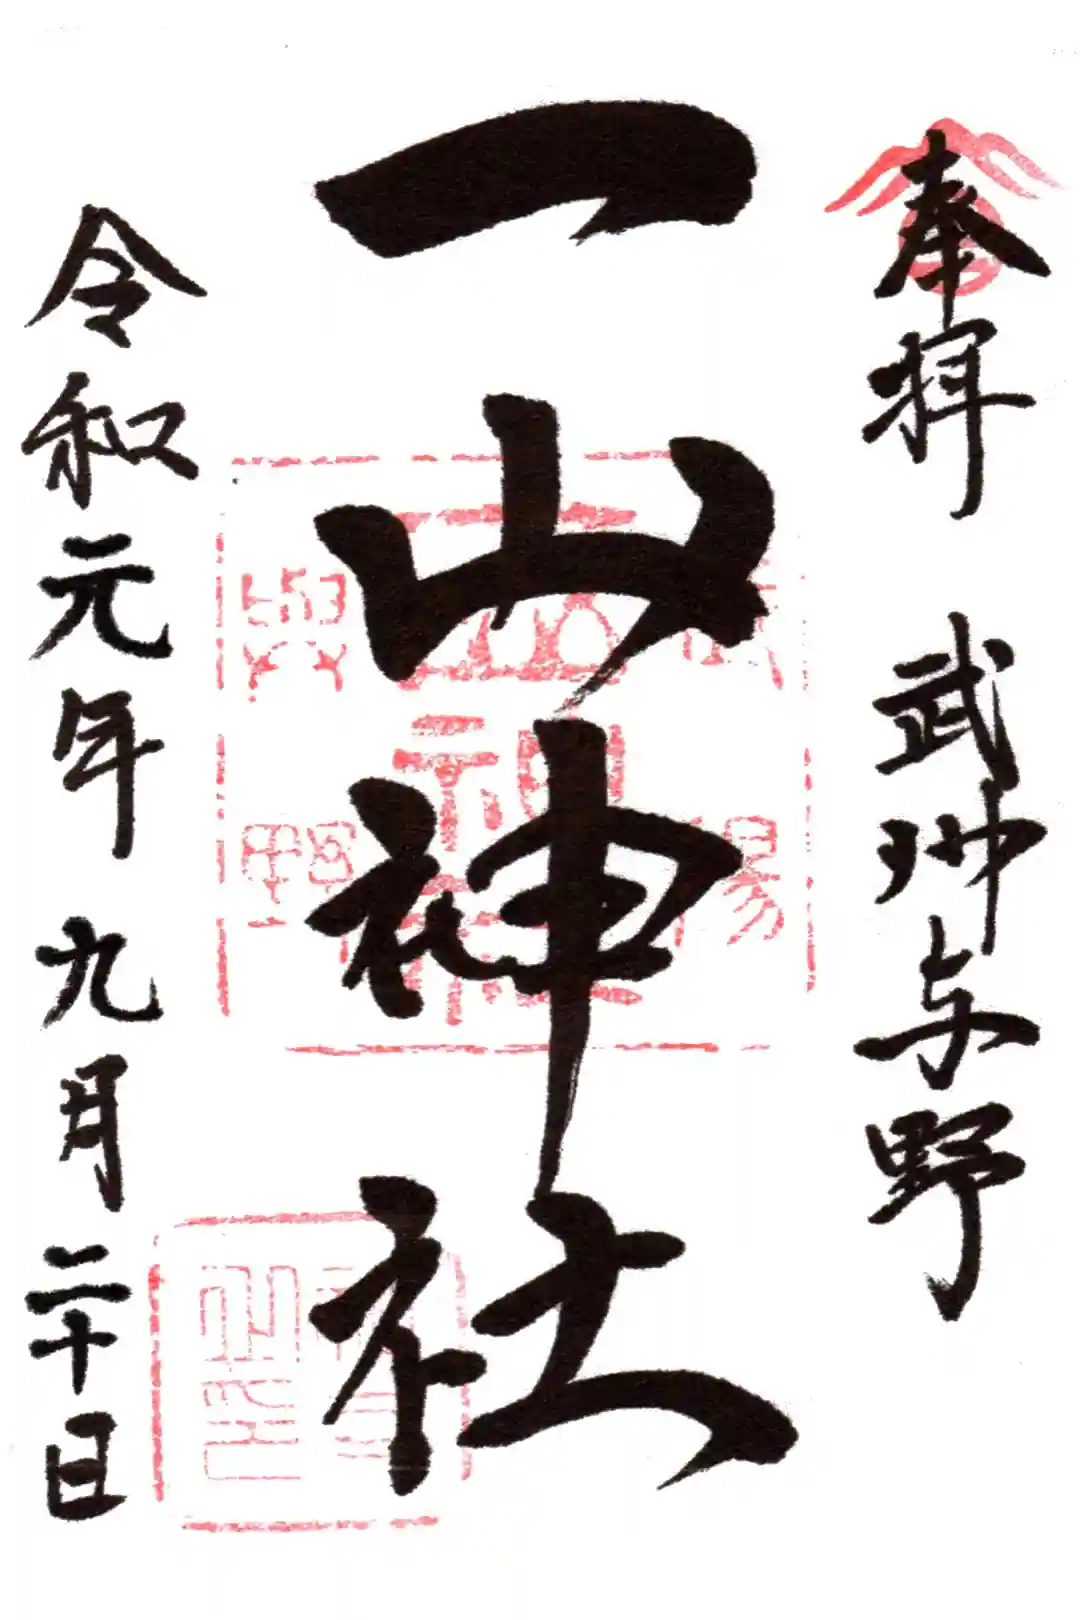 奉拝 武州与野
一山神社
令和元年 九月二十日